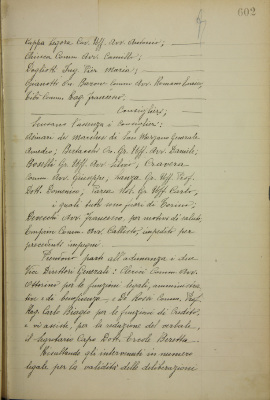 602
Cappa Legora Cav. Uff. Avv. Antonio; —
Chiesa Comm. Avv. Camillo; —
Dogliotti Ing. Pier Maria; —
Quarotti Avv. Comm. Avv. Romano
Comm. Rag. Francesco, —
Consiglieri;
Scusano l'assenza i consiglieri:
Asinari dei marchesi di San Marzano Generale
Amedeo; Bertacchi Co. Gr. Uff. Avv. Daniele;
Boselli Gr. Uff. Avv. Silvio, Cravera
Comm. Avv. Giuseppe, Lanza Gr. Uff. Prof.
Dott. Domenico, Tirsa Not. Gr. Uff. Carlo,
i quali tutti sono fuori di Torino;
Bosochi Avv. Francesco, per motivi di salute,
Comm. Avv. Callisto, impediti per
precedenti impegni.
Prendono parte all'adunanza i due
Vice Direttori Generali: Clerici Comm. Avv.
Ottorino per le funzioni legali, amministra=
tive e di beneficenza, e De Rosa Comm. Prof.
Rag. Carlo Biagio per le funzioni di Credito,
e vi assiste, per la redazione del verbale,
il Segretario Capo Dott. Ercole Beretta.
Risultando gli intervenuti in numero
legale per la validità delle deliberazioni